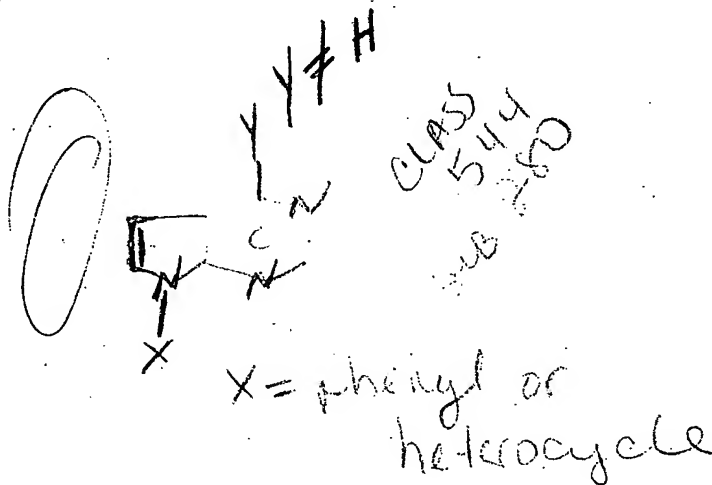 Y ≠ H
Y
N
C
N
N
X
CLASS
544
SUB 280
X = phenyl or
heterocycle